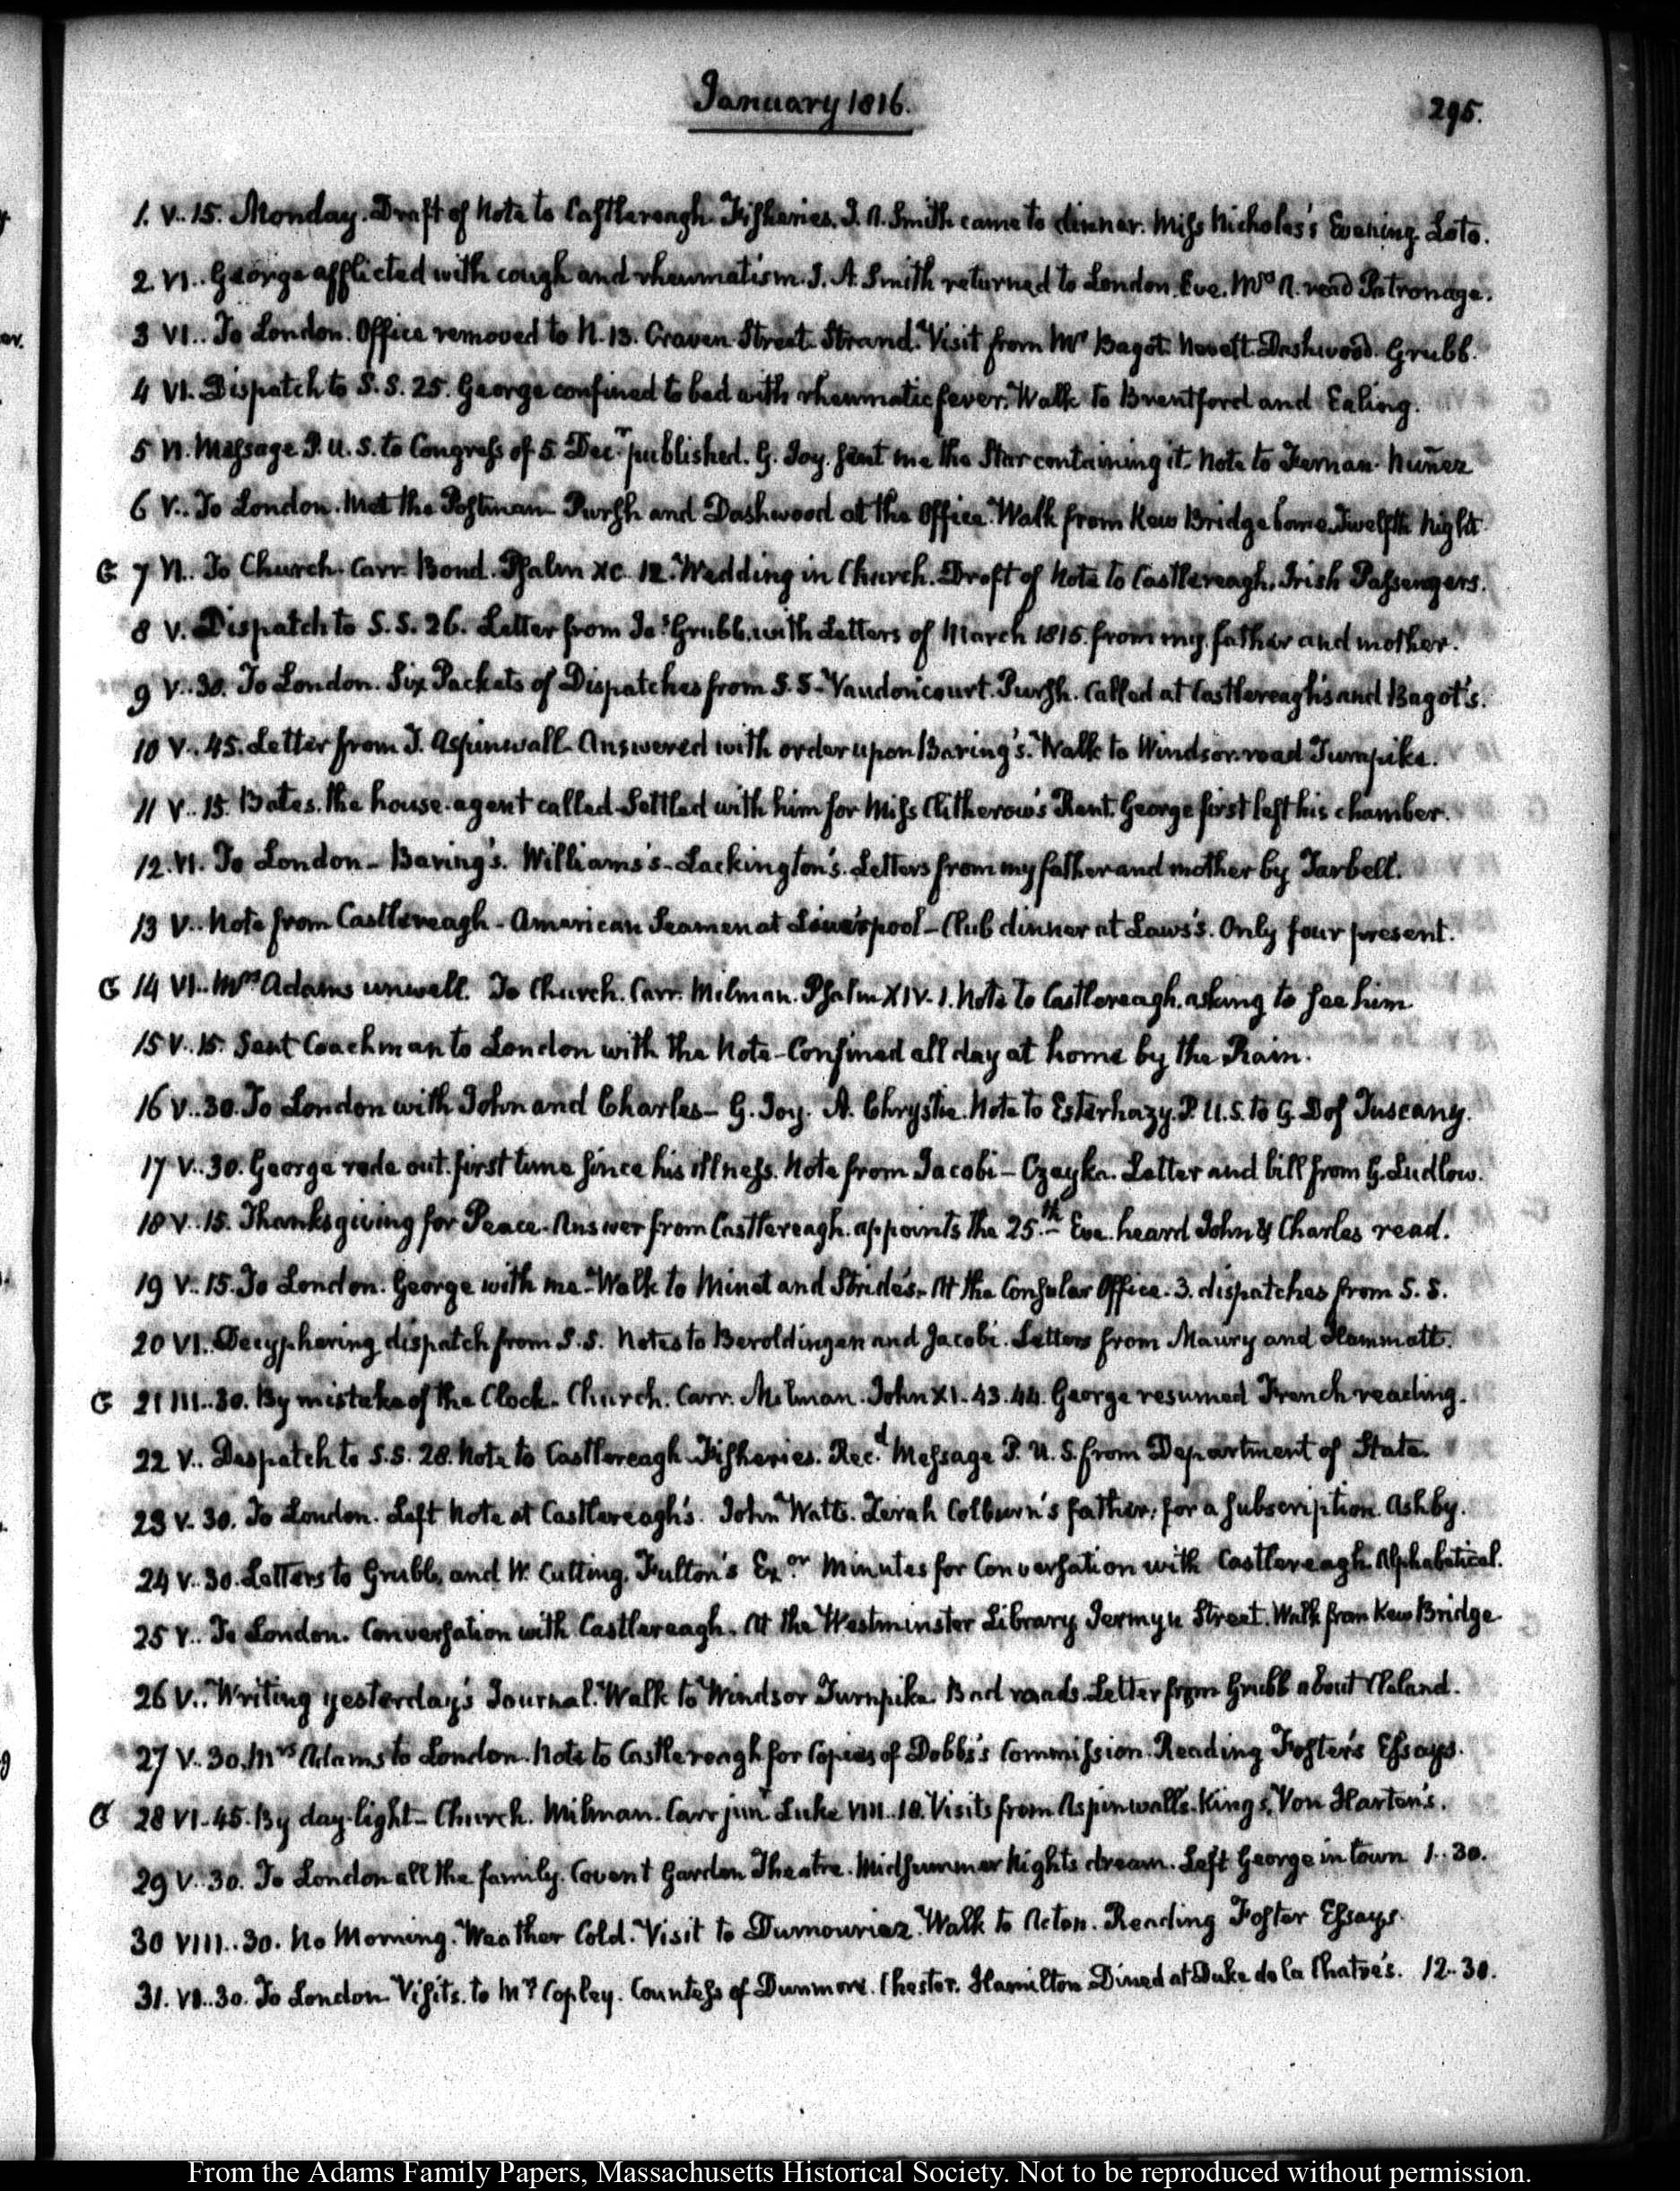 January 1816.
295.
1. V.. 15. Monday. Draft of Note to Castlereagh. Fisheries. J. A. Smith came to dinner. Miss Nicholas's Evening. Loto.
2 VI.. George afflicted with cough and rheumatism. J. A. Smith returned to London. Eve. Mrs A. read Patronage.
3 VI.. To London. Office removed to N. 13. Craven Street. Strand. Visit from Mr Bagot. Dashwood. Grubb.
4 VI. Dispatch to S. S. 25. George confined to bed with rheumatic fever. Walk to Brentford and Ealing.
5 VI. Message P. U. S. to Congress of 5 Decr published. G. Joy. sent me the Star containing it. Note to Fernan. Nuñez
6 V.. To London. Met the Postman. Pursh and Dashwood at the Office. Walk from Kew Bridge home. Twelfth Night.
G 7 VI. To Church. Carr. Bond. Psalm XC. 12. Wedding in Church. Draft of Note to Castlereagh. Irish Passengers.
8 V. Dispatch to S. S. 26. Letter from Jas Grubb. with Letters of March 1815. from my father and mother.
9 V..30. To London. Six Packets of Dispatches from S. S. Vaudoncourt. Pursh. Called at Castlereagh's and Bagot's.
10 V..45. Letter from T. Aspinwall. Answered with order upon Baring's. Walk to Windsor road Turnpike.
11 V..15. Bates. the house-agent called. Settled with him for Miss Clitherow's Rent. George first left his chamber.
12. VI. To London - Baring's. Williams's - Lackington's. Letters from my father and mother by Tarbell.
13 V.. Note from Castlereagh - American Seamen at Liverpool - Club dinner at Laws's. Only four present.
G 14 VI.. Mrs Adams unwell. To Church. Carr. Milman. Psalm XIV. 1. Note to Castlereagh. asking to see him.
15 V..15. Sent Coachman to London with the Note - Confined all day at home by the Rain.
16 V..30. To London with John and Charles - G. Joy. A. Chrystie. Note to Esterhazy. P. U. S. to G. D of Tuscany.
17 V..30. George rode out. first time since his illness. Note from Jacobi - Czeyka. Letter and bill from G. Ludlow.
18 V..15. Thanksgiving for Peace. Answer from Castlereagh. appoints the 25th. Eve. heard John & Charles read.
19 V..15. To London. George with me. Walk to Minet and Stride's. At the Consular Office. 3. dispatches from S. S.
20 VI.. Decyphering dispatch from S. S. Notes to Beroldingen and Jacobi. Letters from Maury and Hammatt.
G 21 III..30. By mistake of the Clock. Church. Carr. Milman. John XI. 43. 44. George resumed French reading.
22 V.. Despatch to S. S. 28. Note to Castlereagh. Fisheries. Recd Message P. U. S. from Department of State.
23 V. 30. To London. Left Note at Castlereagh's. John Watts. Zerah Colburn's father, for a subscription. Ashby.
24 V..30. Letters to Grubb, and W. Cutting, Fulton's Exor. Minutes for Conversation with Castlereagh. Alphabetical.
25 V.. To London. Conversation with Castlereagh. At the Westminster Library Jermyn Street. Walk from Kew Bridge
26 V.. Writing yesterday's Journal. Walk to Windsor Turnpike. Bad roads. Letter from Grubb about Cleland.
27 V. 30. Mrs Adams to London. Note to Castlereagh for Copies of Dobbs's Commission. Reading Foster's Essays.
G 28 VI..45. By day-light - Church. Milman. Carr junr Luke VIII..18. Visits from Aspinwalls. Kings, Von Harten's.
29 V..30. To London all the family. Covent Garden Theatre. Midsummer Nights dream. Left George in town 1..30.
30 VIII..30. No Morning. Weather Cold. Visit to Dumouriez. Walk to Acton. Reading Foster Essays.
31. VII..30. To London. Visits. to Mrs Copley. Countess of Dunmore. Chester. Hamilton. Dined at Duke de la Chatre's. 12..30.
From the Adams Family Papers, Massachusetts Historical Society. Not to be reproduced without permission.